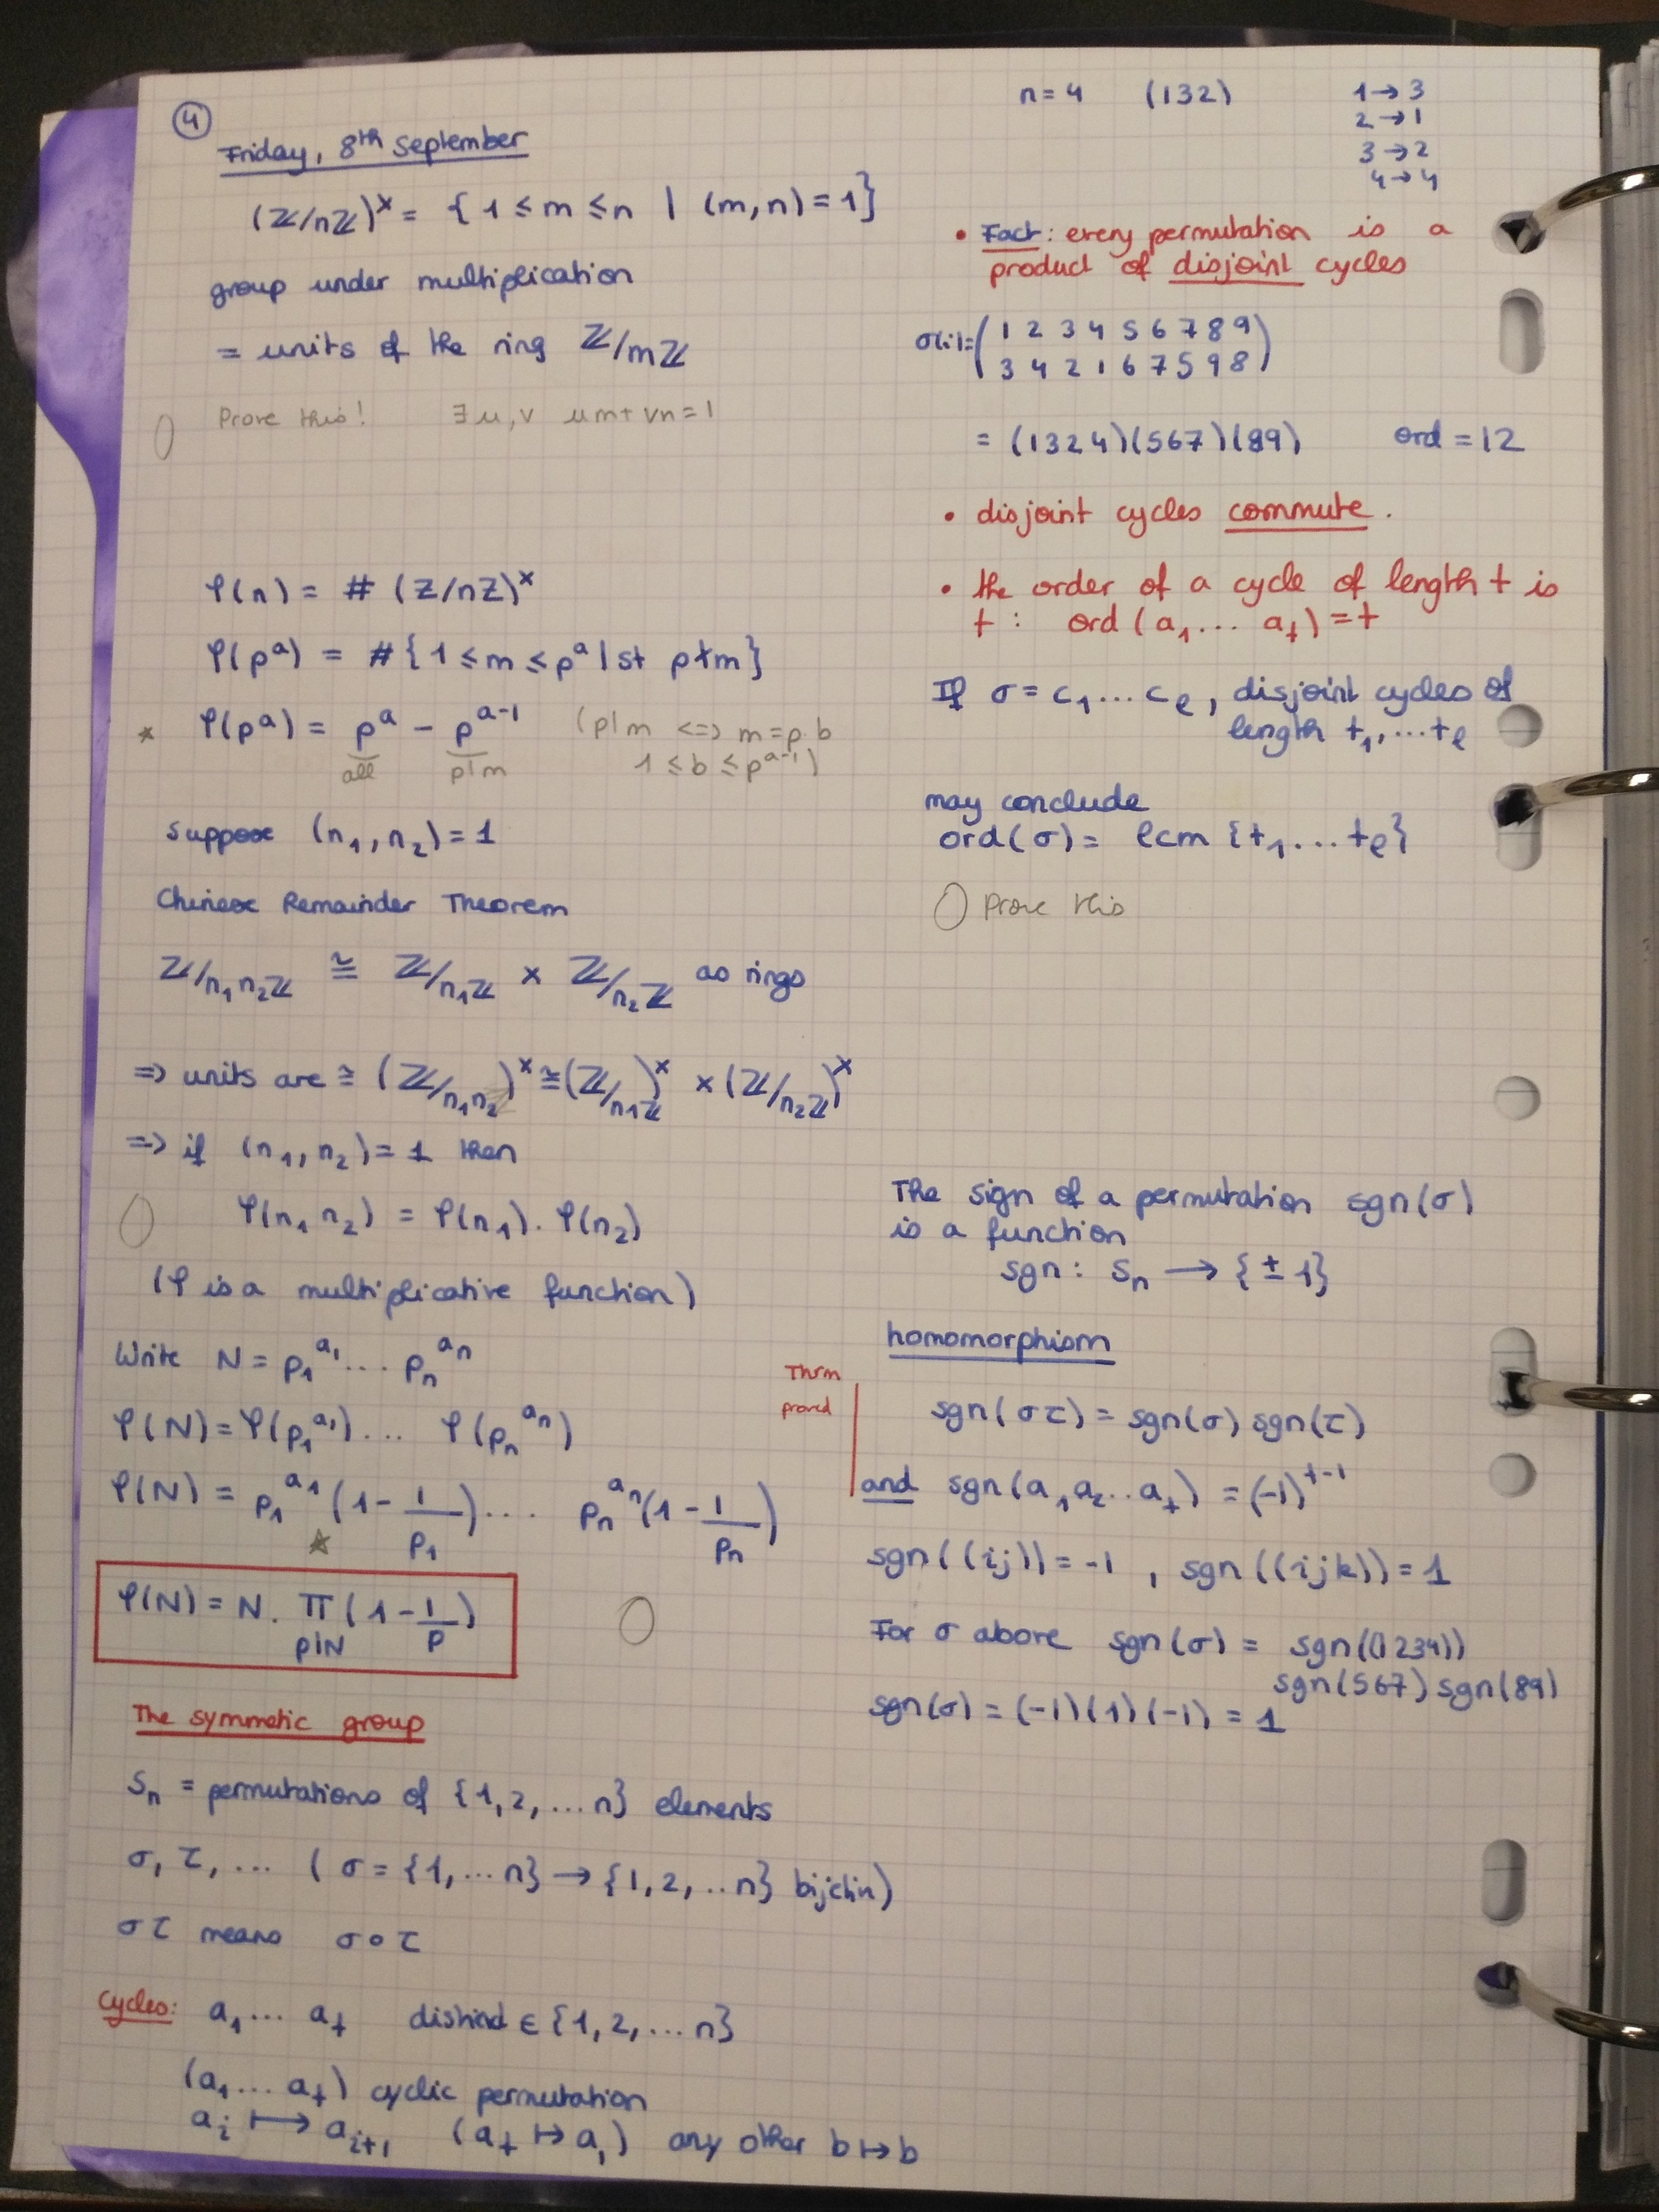 4
Friday, 8th September
(ℤ/nℤ)^x = { 1 ≤ m ≤ n | (m,n) = 1}
group under multiplication
= units of the ring ℤ/mℤ
Prove this! ∃ u,v um + vn = 1
φ(n) = # (Z/nZ)^x
φ(p^a) = #{ 1 ≤ m ≤ p^a | st p∤m}
* φ(p^a) = p^a - p^(a-1) (p|m <=> m = p.b
all p|m 1 ≤ b ≤ p^(a-1))
Suppose (n_1, n_2) = 1
Chinese Remainder Theorem
ℤ/n_1n_2ℤ ≅ ℤ/n_1ℤ × ℤ/n_2ℤ as rings
=> units are ≅ (ℤ/n_1n_2)^x ≅ (ℤ/n_1ℤ)^x × (ℤ/n_2ℤ)^x
=> if (n_1, n_2) = 1 then
φ(n_1 n_2) = φ(n_1). φ(n_2)
(φ is a multiplicative function)
Write N = p_1^a_1 ... p_n^a_n
φ(N) = φ(p_1^a_1) ... φ(p_n^a_n)
φ(N) = p_1^a_1 (1 - 1/p_1) ... p_n^a_n (1 - 1/p_n)
*
φ(N) = N. Π (1 - 1/p)
p|N
The symmetic group
S_n = permutations of {1, 2, ... n} elements
σ, τ, ... ( σ = {1, ... n} → {1, 2, .. n} bijctin)
σ τ means σ ∘ τ
Cycles: a_1 ... a_t distind ∈ {1, 2, ... n}
(a_1 ... a_t) cyclic permutation
a_i ↦ a_(i+1) (a_t ↦ a_1) any other b ↦ b
n = 4 (132) 1 → 3
2 → 1
3 → 2
4 → 4
• Fact: every permutation is a
product of disjoint cycles
σ(i) = ( 1 2 3 4 5 6 7 8 9 )
( 3 4 2 1 6 7 5 9 8 )
= (1324)(567)(89) ord = 12
• disjoint cycles commute.
• the order of a cycle of length t is
t : ord (a_1 ... a_t) = t
If σ = c_1 ... c_ℓ, disjoint cycles of
length t_1, ... t_ℓ
may conclude
ord(σ) = lcm {t_1 ... t_ℓ}
Prove this
The sign of a permutation sgn(σ)
is a function
sgn: S_n → {± 1}
homomorphism
Thrm
proved
sgn(στ) = sgn(σ) sgn(τ)
and sgn(a_1 a_2 .. a_t) = (-1)^(t-1)
sgn((ij)) = -1 , sgn((ijk)) = 1
For σ above sgn(σ) = sgn((1234))
sgn(567) sgn(89)
sgn(σ) = (-1)(1)(-1) = 1